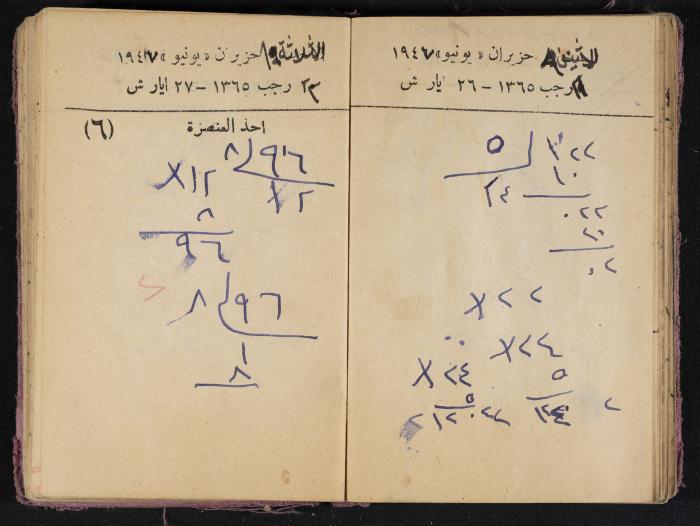 الاثنين ٨ حزيران «يونيو» ١٩٤٧
رجب ١٣٦٥ – ٢٦ ايار ش
٥ ١٢٢
١٠
٢٤
٠٢٢
٢٠
٠٢
X٢٢
X٢٤
٥
X٢٤
٥
الثلاثة ٩ حزيران «يونيو» ١٩٤٧
٢٣ رجب ١٣٦٥ – ٢٧ ايار ش
(٦) احد العنصرة
٨ ٩٦
X١٢
X١٢
٨
٩٦
٨ ٩٦
١
٨